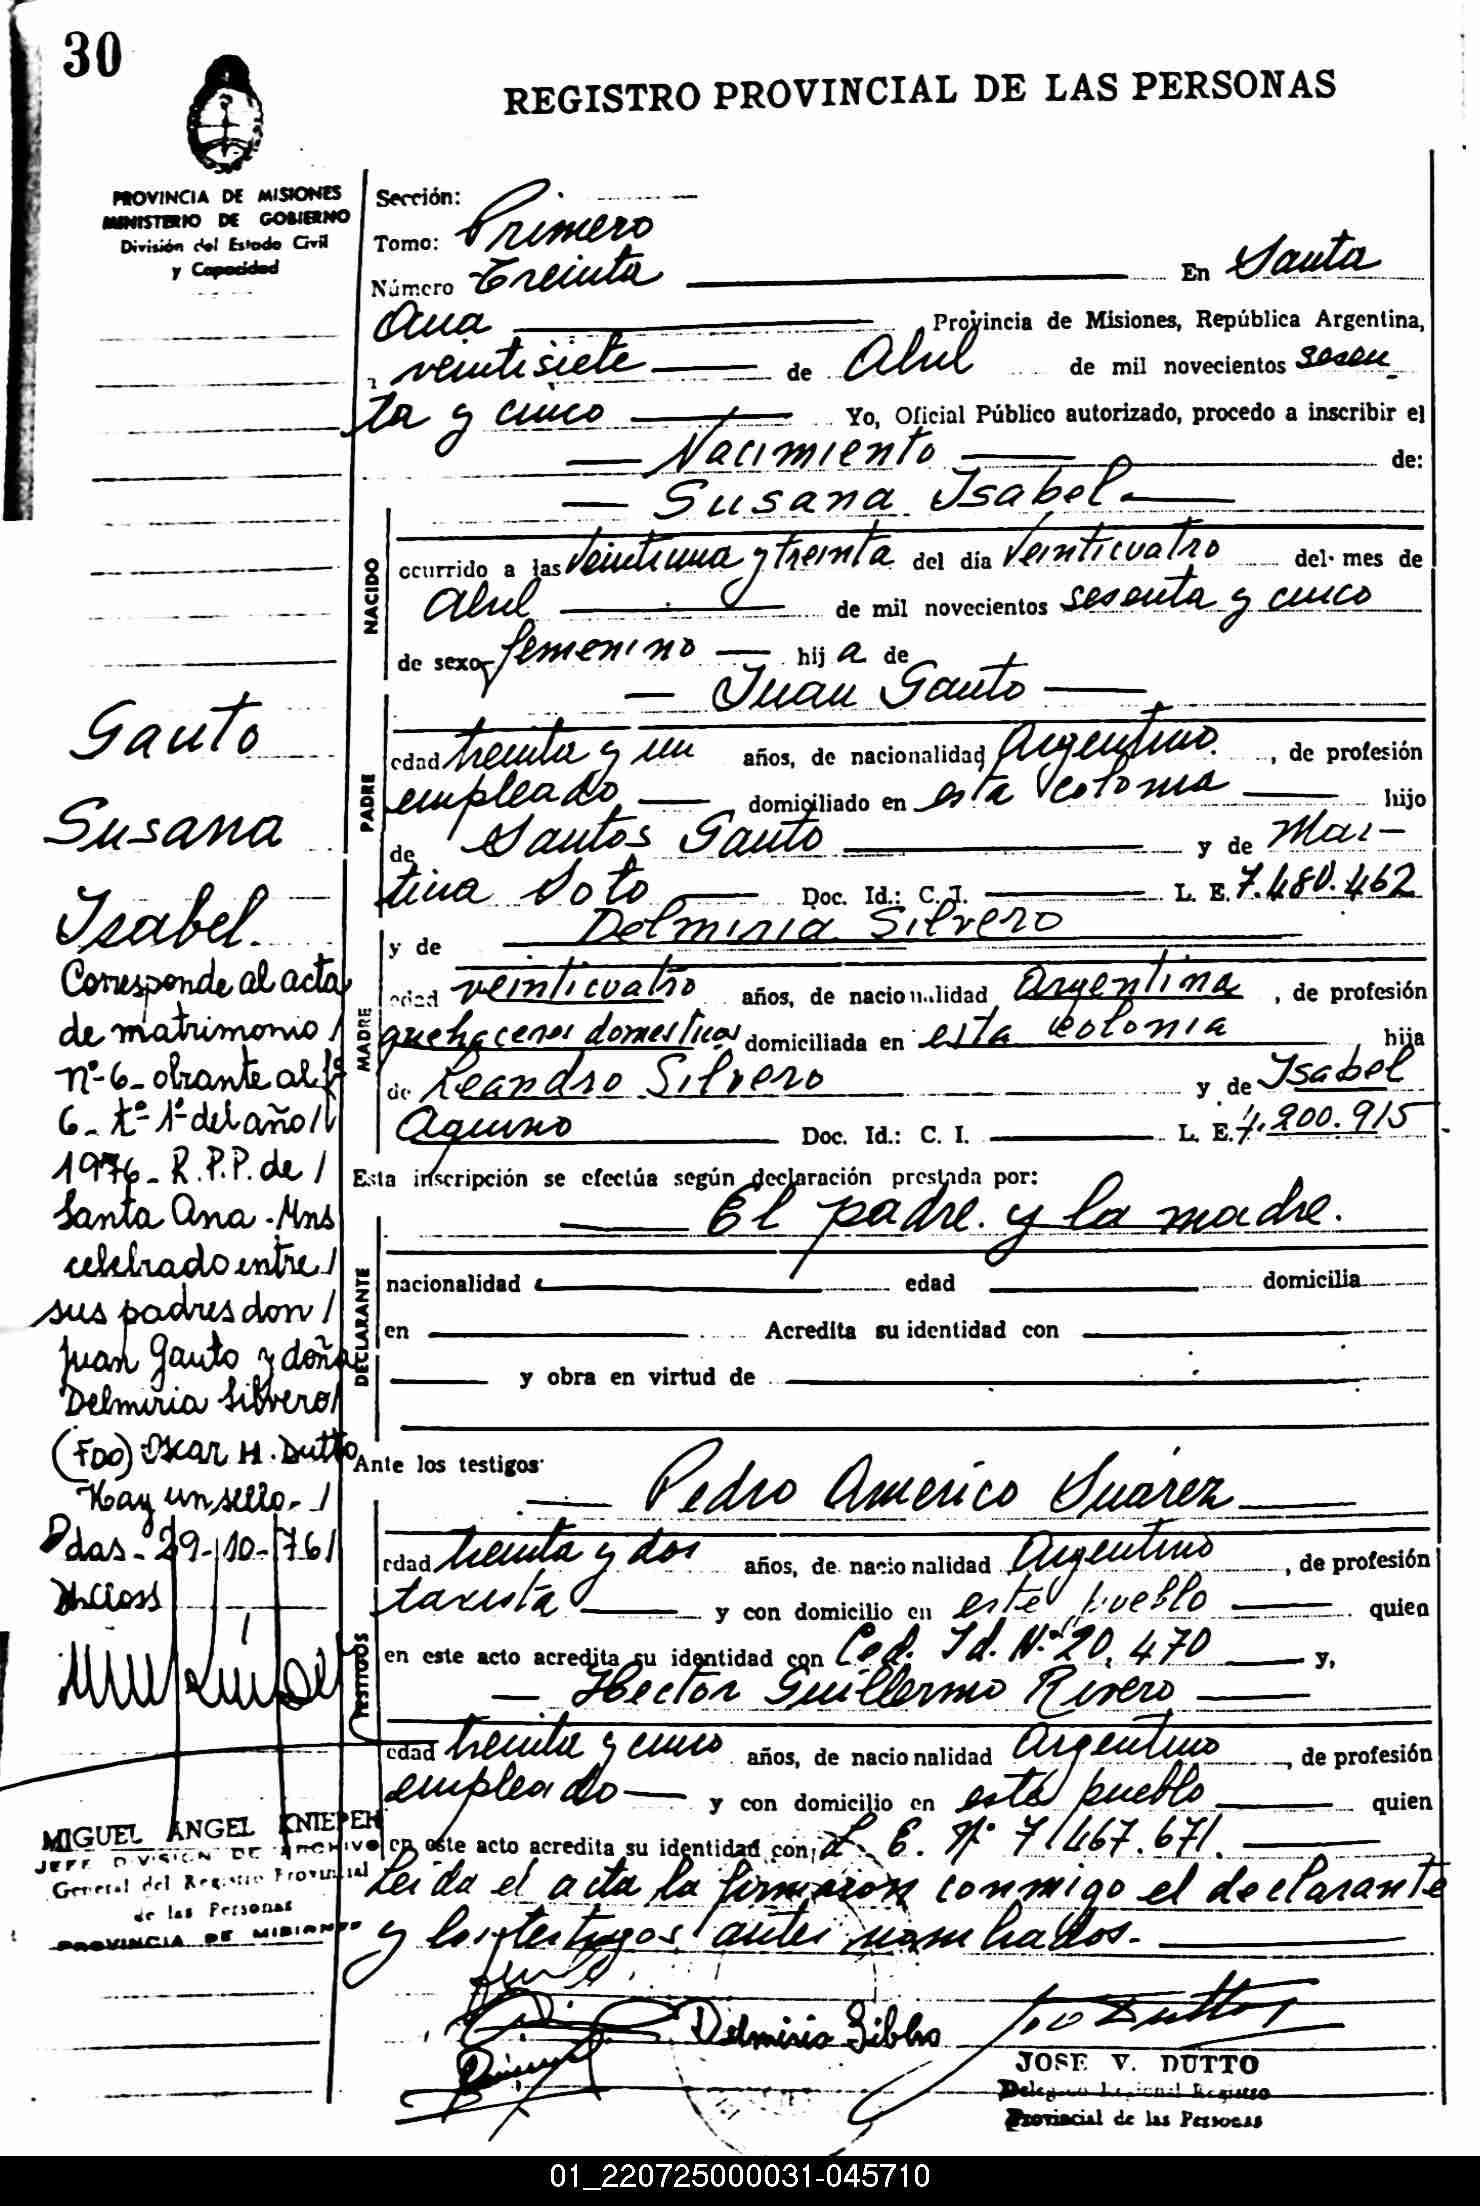 30
REGISTRO PROVINCIAL DE LAS PERSONAS
PROVINCIA DE MISIONES
MINISTERIO DE GOBIERNO
División del Estado Civil
y Capacidad
Sección:
Tomo: Primero
Número Treinta En Santa
Ana Provincia de Misiones, República Argentina,
a veintisiete de Abril de mil novecientos sesen
ta y cinco Yo, Oficial Público autorizado, procedo a inscribir el
Nacimiento de:
Susana Isabel
NACIDO
ocurrido a las veintiuna y treinta del día veinticuatro del mes de
Abril de mil novecientos sesenta y cinco
de sexo femenino hija de
Juan Gauto
PADRE
edad treinta y un años, de nacionalidad Argentino, de profesión
empleado domiciliado en esta colonia hijo
de Santos Gauto y de Mar-
tina Soto Doc. Id.: C. I. L. E. 7.480.462
y de Delmiria Silvero
MADRE
edad veinticuatro años, de nacionalidad Argentina, de profesión
quehaceres domesticos domiciliada en esta colonia hija
de Leandro Silvero y de Isabel
Aquino Doc. Id.: C. I. L. E. 4.200.915
Esta inscripción se efectúa según declaración prestada por:
El padre y la madre.
DECLARANTE
nacionalidad edad domicilia
en Acredita su identidad con
y obra en virtud de
Ante los testigos
Pedro Americo Suárez
TESTIGOS
edad treinta y dos años, de nacionalidad Argentino, de profesión
taxista y con domicilio en este pueblo quien
en este acto acredita su identidad con Ced. Id. Nº 20.470 y,
Hector Guillermo Rivero
edad treinta y cinco años, de nacionalidad Argentino, de profesión
empleado y con domicilio en este pueblo quien
en este acto acredita su identidad con L. E. Nº 7.467.671.
Leida el acta la firmaron conmigo el declarante
y los testigos antes nombrados.
Delmiria Silbro
JOSE V. DUTTO
Delegado Regional Registro
Provincial de las Personas
Gauto
Susana
Isabel.
Corresponde al acta
de matrimonio /
nº-6- obrante al fº
6- tº 1º del año //
1976- R.P.P. de /
Santa Ana - Mns
celebrado entre /
sus padres don /
Juan Gauto y doña
Delmiria Silvero/
(FDO) Oscar H. Dutto
Hay un sello.- /
Pdas- 29-10-76/
MIGUEL ANGEL KNIEPEH
JEFE DIVISION DE ARCHIVO
General del Registro Provincial
de las Personas
PROVINCIA DE MISIONES
01_220725000031-045710